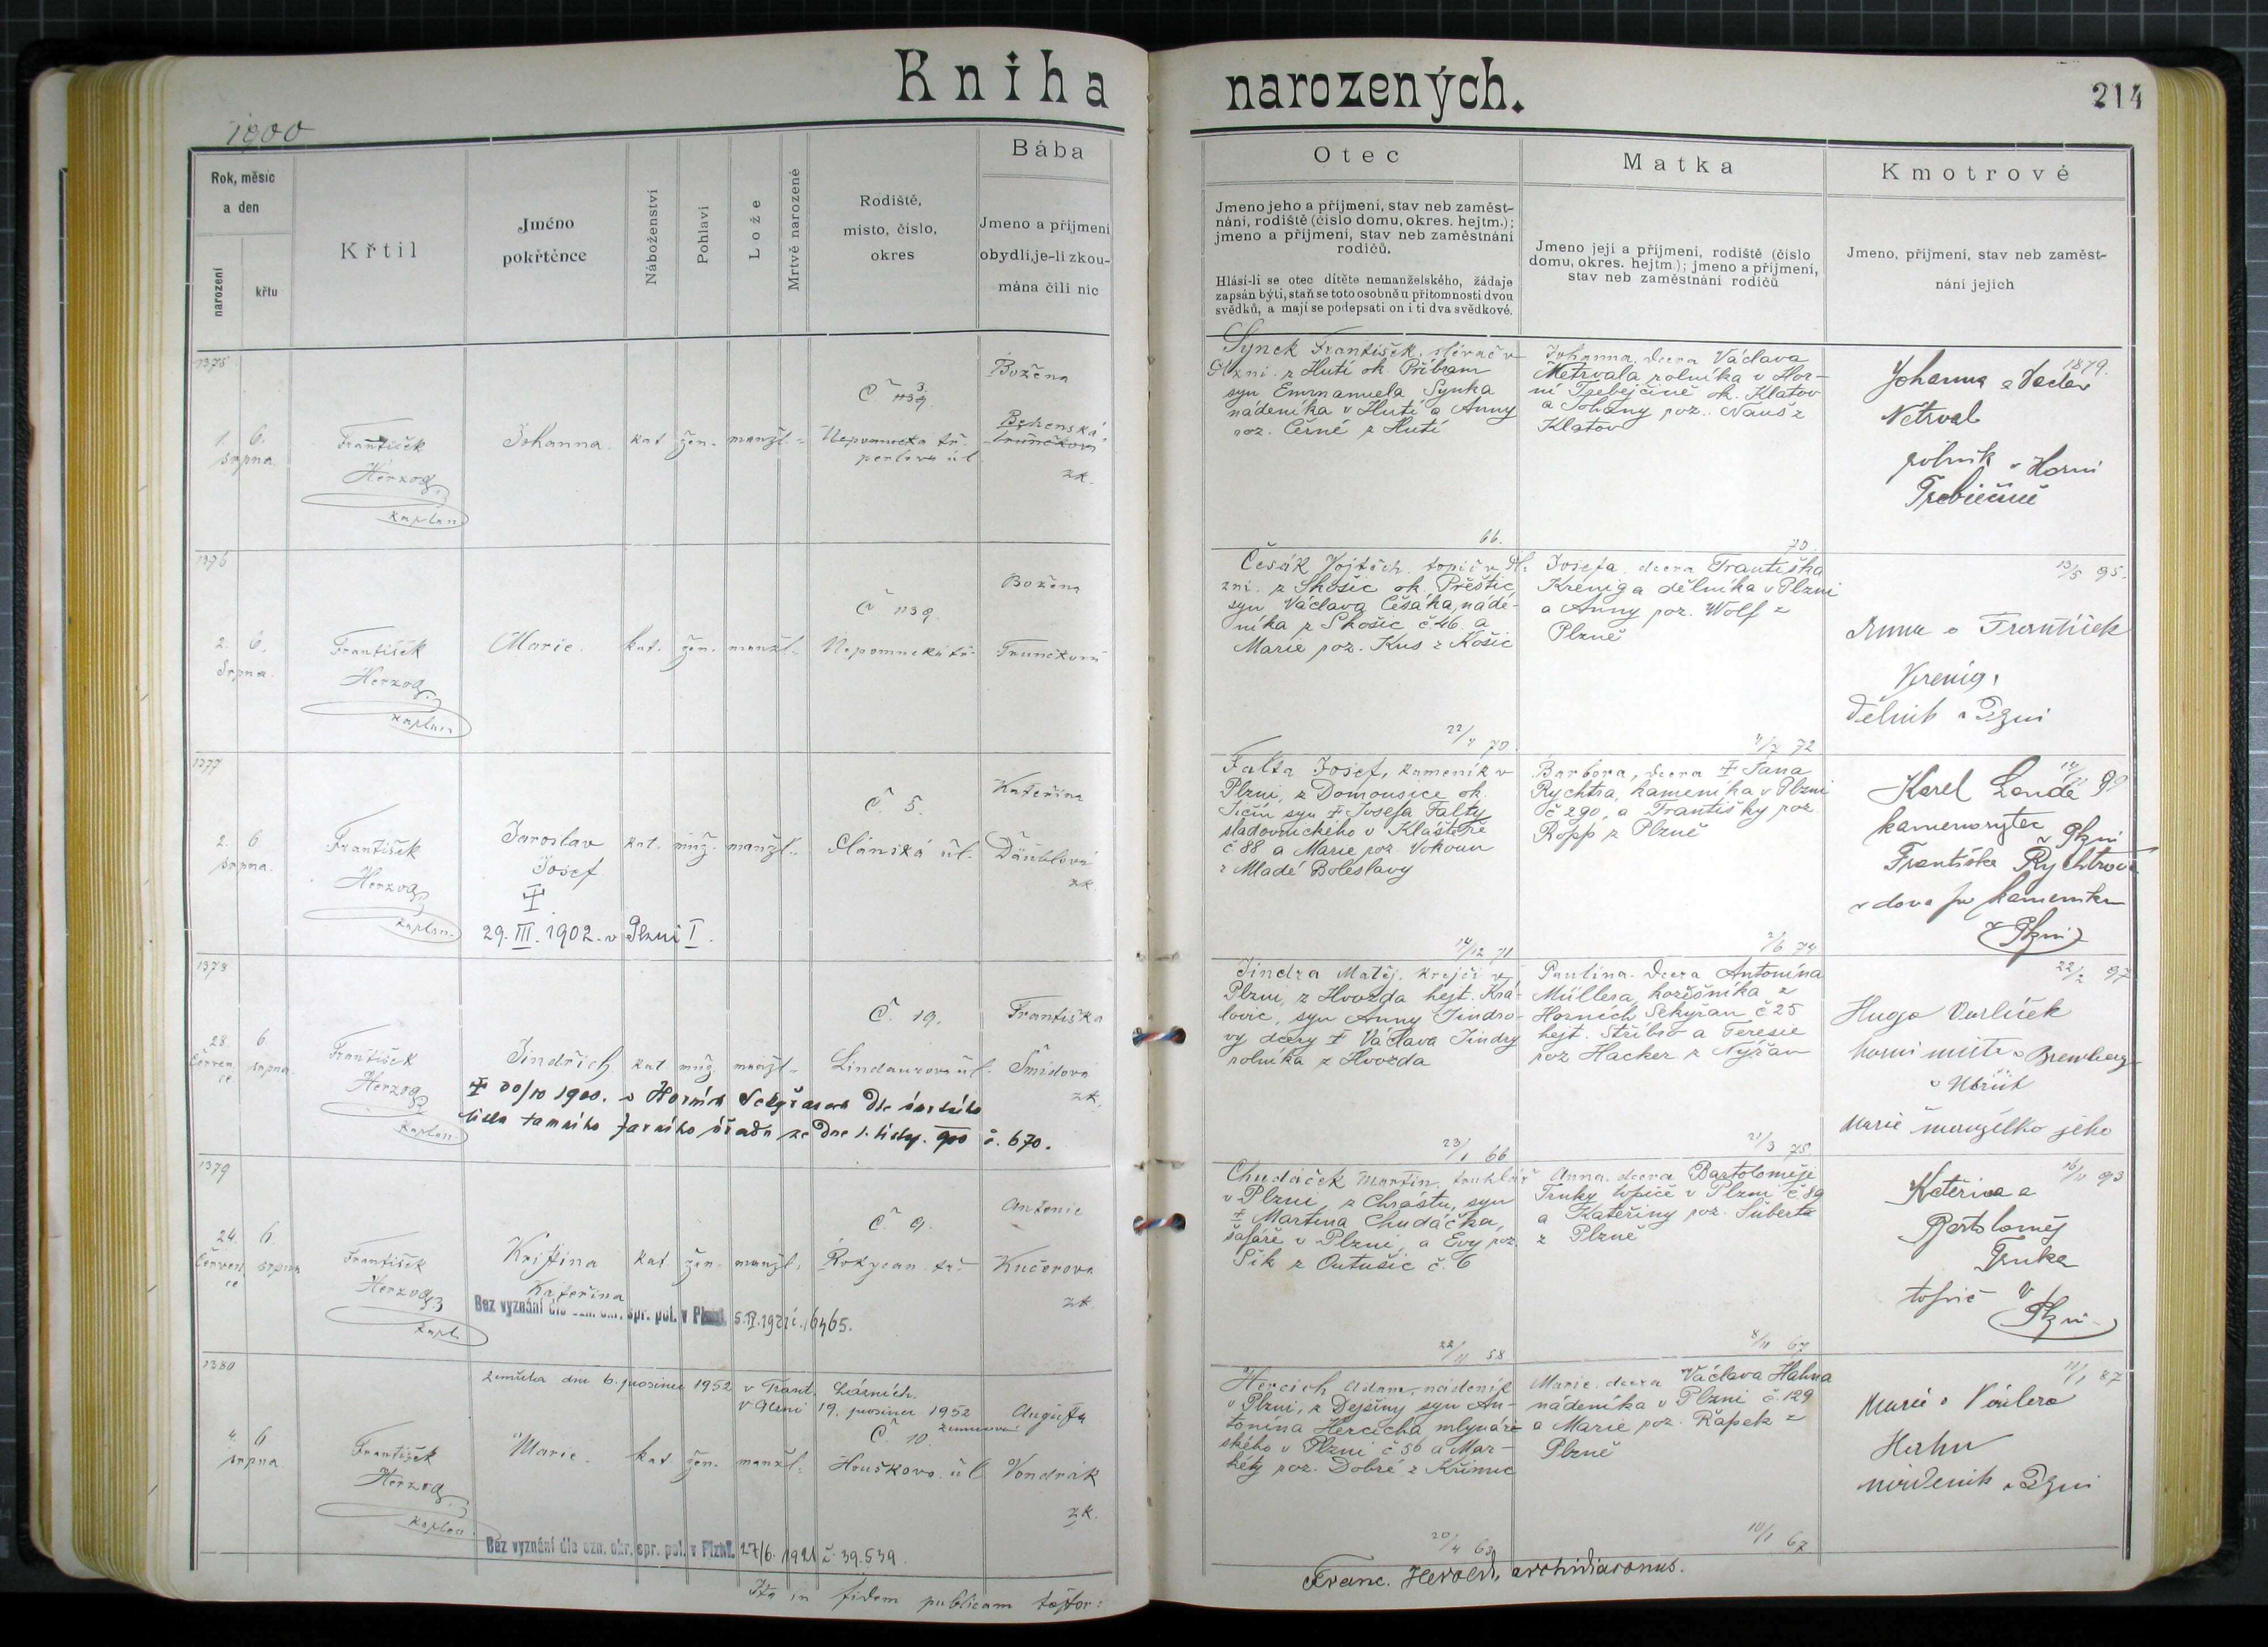 Kniha narozených.
214
1900
Rok, měsíc
a den
narození
křtu
Křtil
Jméno
pokřtěnce
Náboženství
Pohlaví
Lože
Mrtvě narozené
Rodiště,
místo, číslo,
okres
Bába
Jmeno a příjmení
obydlí, je-li zkou-
mána čili nic
Otec
Jmeno jeho a příjmení, stav neb zaměst-
nání, rodiště (číslo domu, okres. hejtm.);
jmeno a příjmení, stav neb zaměstnání
rodičů.
Hlásí-li se otec dítěte nemanželského, žádaje
zapsán býti, staň se toto osobně u přítomnosti dvou
svědků, a mají se podepsati on i ti dva svědkové.
Matka
Jmeno její a příjmení, rodiště (číslo
domu, okres. hejtm.); jmeno a příjmení,
stav neb zaměstnání rodičů
Kmotrové
Jmeno, příjmení, stav neb zaměst-
nání jejich
1375
1. 6.
srpna
František
Herzog
kaplan
Johanna
kat. žen. manžl.
Č. 1139.
Božena
zk.
Synek František, slévač v
Plzni z Hutí ok. Příbram
syn Emmanuela Synka
nádeníka v Hutí a Anny
roz. Černé z Hutí
66.
Johanna, dcera Václava
Netrvala rolníka v Hor-
ní ok. Klatov
a Johany roz. Nauš z
Klatov
70.
Johanna a Václav
Netrval
rolník v Horní
1879.
1376
2. 6.
Srpna.
František
Herzog
kaplan
Marie.
kat. žen. manžl.
Č. 1139.
Nepomucká tř.
Božena
Trunečková
Češák Vojtěch, topič v Pl-
zni, z Skošic ok. Přeštic,
syn Václava Češáka, náde-
níka z Skošic č. 46 a
Marie roz. Kus z Košic
22/4 70
Josefa, dcera Františka
Kreniga dělníka v Plzni
a Anny roz. Wolf z
Plzně
4/7 72
13/5 95.
Anna a František
Krenig,
dělník v Plzni
1377
2. 6
srpna.
František
Herzog
kaplan
Jaroslav
Josef
29. III. 1902. v Plzni I.
kat. muž. manžl.
Č. 5.
Slánská úl.
Kateřina
Däublová
zk.
Falta Josef, kameník v
Plzni, z Domousice ok.
Jičín syn † Josefa Falty
sladovnického v Klášteře
č 88 a Marie roz. Vokoun
z Mladé Boleslavy
14/12 71
Barbora, dcera † Jana
Rychtra, kameníka v Plzni
č 290, a Františky roz.
Ropp z Plzně
2/6 74
Karel Lauda
kamenorytec v Plzni
Františka Rychtrová
vdova po kameníku
v Plzni
1378
28. 6.
červen-
ce. srpna.
František
Herzog
kaplan
Jindřich
kat. muž. manžl.
Č. 19.
Lindaurova úl.
Františka
Šmídová
zk.
† 30/10 1900. v Horních Sekyřanech dle úmrtního
listu tamního farního úřadu ze dne 1. listop. 900 č. 670.
Jindra Matěj, krejčí v
Plzni, z Hvozda hejt. Krá-
lovic, syn Anny Jindro-
vy dcery † Václava Jindry
rolníka z Hvozda
23/1 66
Paulina, dcera Antonína
Müllera, kožešníka z
Horních Sekyřan č. 25
hejt. Stříbro a Teresie
roz. Hacker z Nýřan
21/3 75
22/2 97
Hugo
v
Marie manželka jeho
1379
24. 6.
červen-
ce srpna
František
Herzog
kapl.
Kristina
Kateřina
kat. žen. manžl.
Č. 9.
Rokycan. tř.
Antonie
Kučerova
zk.
Bez vyznání dle ozn. okr. spr. pol. v Plzni. 5. IV. 1921 č. 16465.
Chudáček Martin, truhlář
v Plzni, z Chrástu, syn
† Martina Chudáčka,
šafáře v Plzni, a Evy roz.
Šik z Outušic č. 6
22/11 58
Anna, dcera Bartoloměje
Trnky topiče v Plzni č. 89
a Kateřiny roz. Šuberta
z Plzně
8/11 67
16/11 93
Kateřina a
Bartoloměj
Trnka
topič v
Plzni
1380
4. 6
srpna.
František
Herzog
kaplan
zemřela dne 6. prosince 1952 v Frant. Lázních.
v Plzni 19. prosince 1952
Marie.
kat. žen. manžl.
Č. 10.
Houškova úl
Augusta
Vondrák
zk.
Bez vyznání dle ozn. okr. spr. pol. v Plzni. 27/6. 1921 č. 39.539.
Hercich Adam, nádeník
v Plzni, z Dejšiny syn An-
tonína Hercicha mlynář-
ského v Plzni č 56 a Mar-
kéty roz. Dobré z Křimic
20/4 63
Marie, dcera Václava Hahna
nádeníka v Plzni č. 129
a Marie roz. Řapek z
Plzně
10/1 67
11/1 87
Marie a Václav
Hahn
nádeník v Plzni
Ita in fidem publicam testor:
Franc. Herold, archidiaconus.